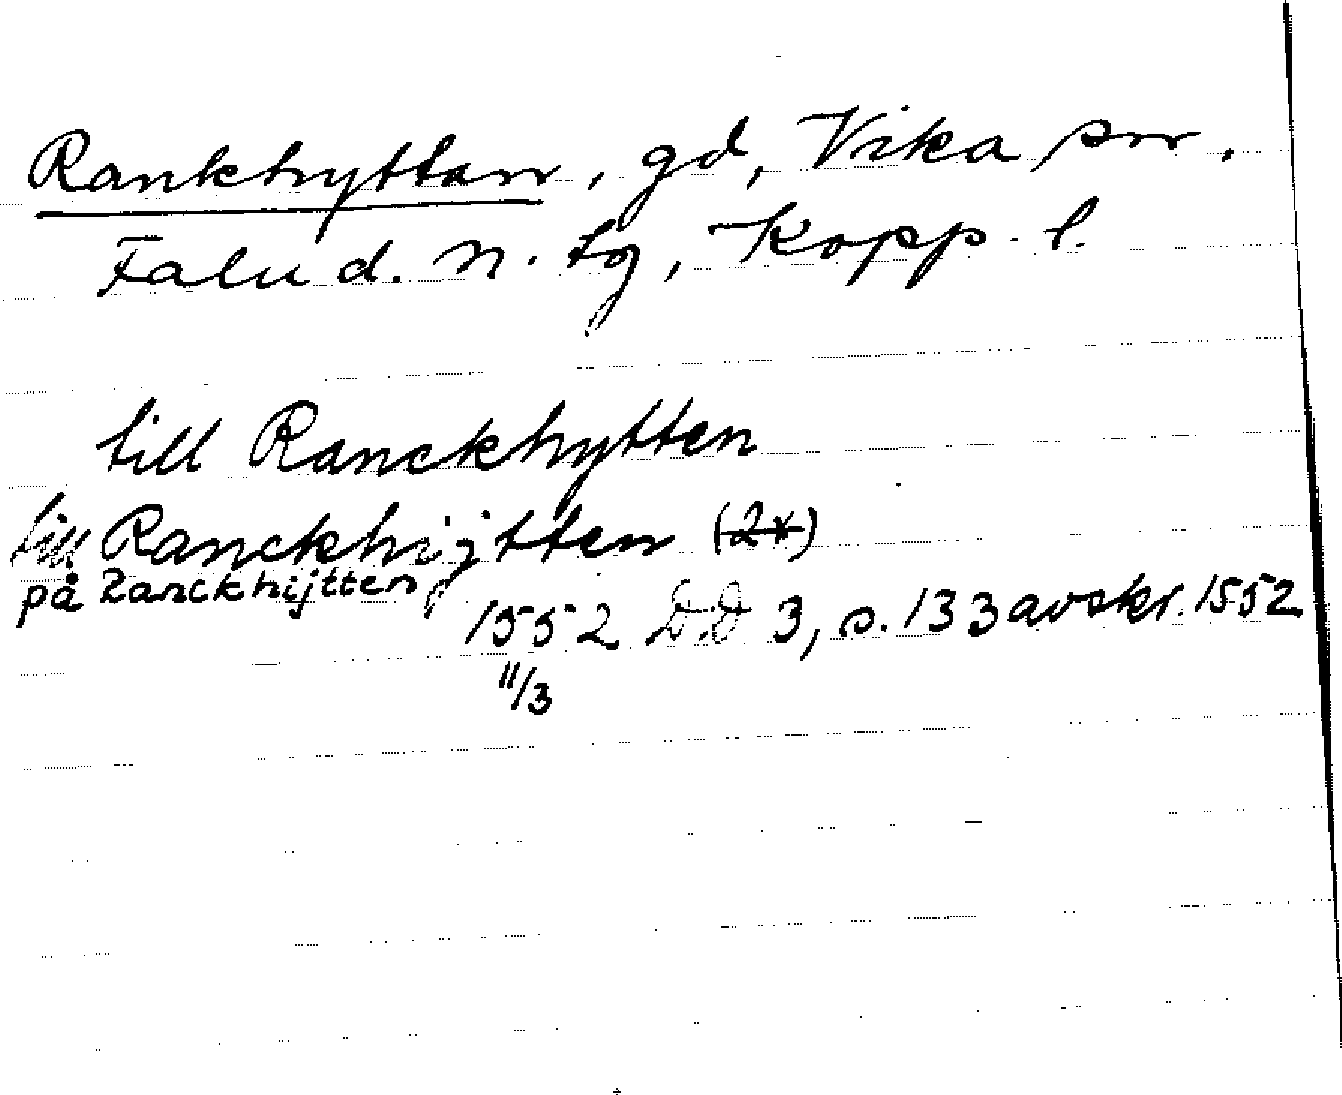 Rankhyttan, gd, Vika sn.
Falu d. n. tg, Kopp. l.
till Ranckhytten
till Ranckhijtten (2x)
på Ranckhijtten
1552 DD 3, s. 133 avskr. 1552
11/3